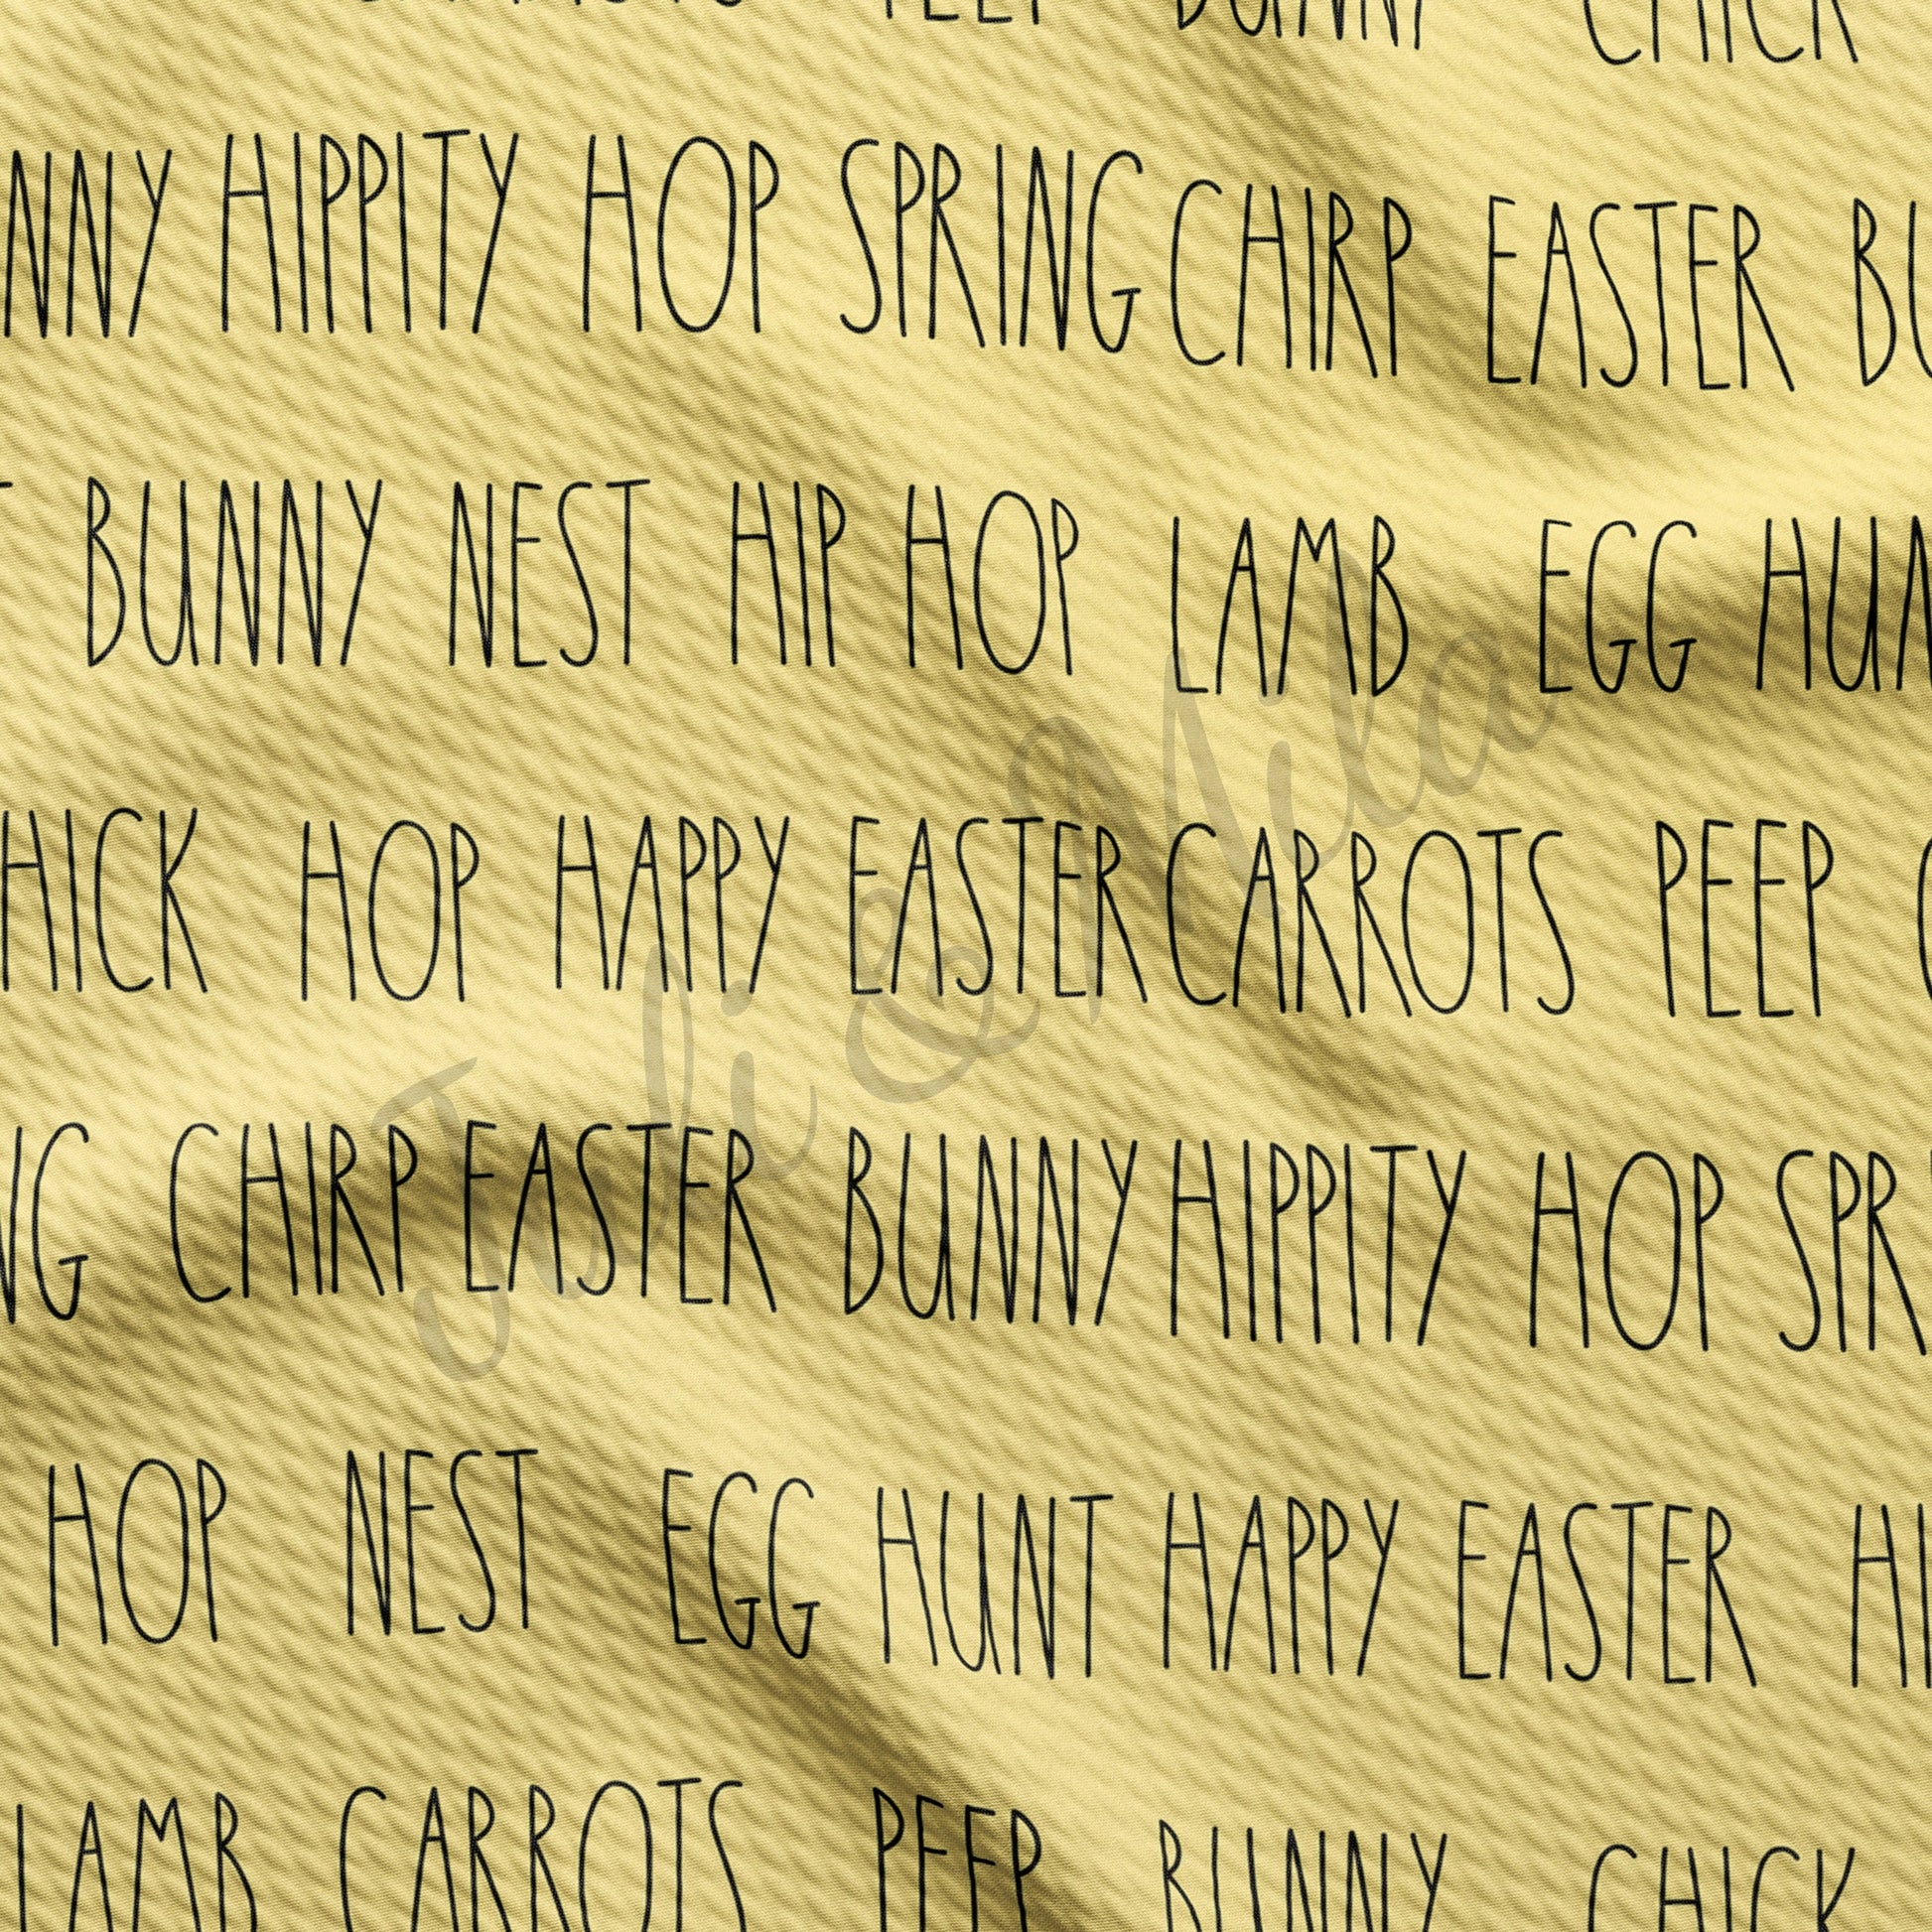 PEEP BUNNY CHICK
NNY HIPPITY HOP SPRING CHIRP EASTER BU
T BUNNY NEST HIP HOP LAMB EGG HUN
HICK HOP HAPPY EASTER CARROTS PEEP
NG CHIRP EASTER BUNNY HIPPITY HOP SPR
HOP NEST EGG HUNT HAPPY EASTER HI
LAMB CARROTS PEEP BUNNY CHICK
Juli & Mila